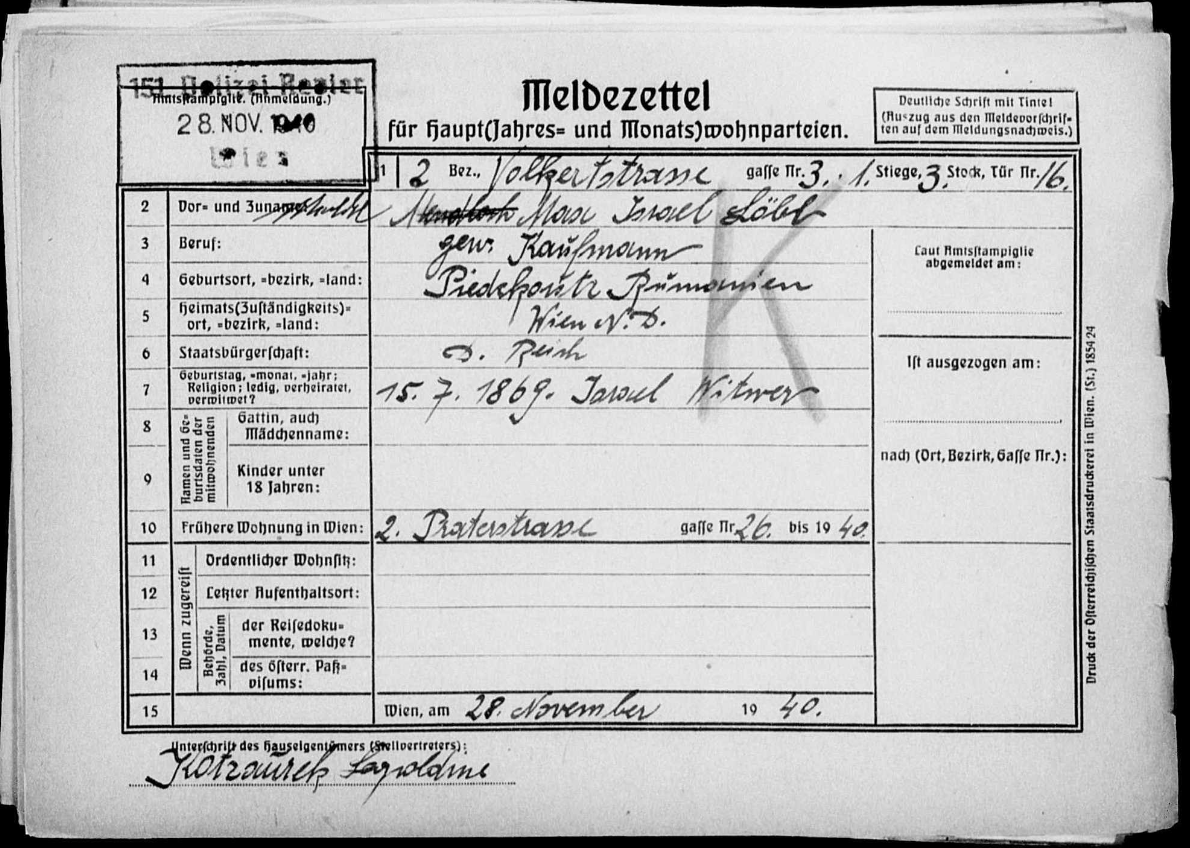 151. Polizei Revier
Amtsstampiglie. (Anmeldung.)
28. NOV. 1940
Wien
Meldezettel
für Haupt(Jahres= und Monats)wohnparteien.
Deutliche Schrift mit Tinte!
(Auszug aus den Meldevorschrif=
ten auf dem Meldungsnachweis.)
1 2 Bez., Volkertstrasse gasse Nr. 3. 1. Stiege, 3. Stock, Tür Nr. 16.
2 Vor= und Zuname: Max Israel Löbl
3 Beruf: gew. Kaufmann
4 Geburtsort, =bezirk, =land: Rumänien
5 Heimats(Zuständigkeits)=
ort, =bezirk, =land: Wien N.D.
6 Staatsbürgerschaft: D. Reich
7 Geburtstag, =monat, =jahr;
Religion; ledig, verheiratet,
verwitwet? 15. 7. 1869. Israel Witwer
K
Namen und Ge=
burtsdaten der
mitwohnenden
8 Gattin, auch
Mädchenname:
9 Kinder unter
18 Jahren:
10 Frühere Wohnung in Wien: 2. Praterstrasse gasse Nr. 26. bis 19 40.
Wenn zugereist
11 Ordentlicher Wohnsitz:
12 Letzter Aufenthaltsort:
Behörde,
Zahl, Datum
13 der Reisedoku=
mente, welche?
14 des österr. Paß=
visums:
15 Wien, am 28. November 19 40.
Laut Amtsstampiglie
abgemeldet am:
Ist ausgezogen am:
nach (Ort, Bezirk, Gasse Nr.):
Druck der Österreichischen Staatsdruckerei in Wien. (St.) 1854 24
Unterschrift des Hauseigentümers (Stellvertreters):
Kotzaurek Leopoldine